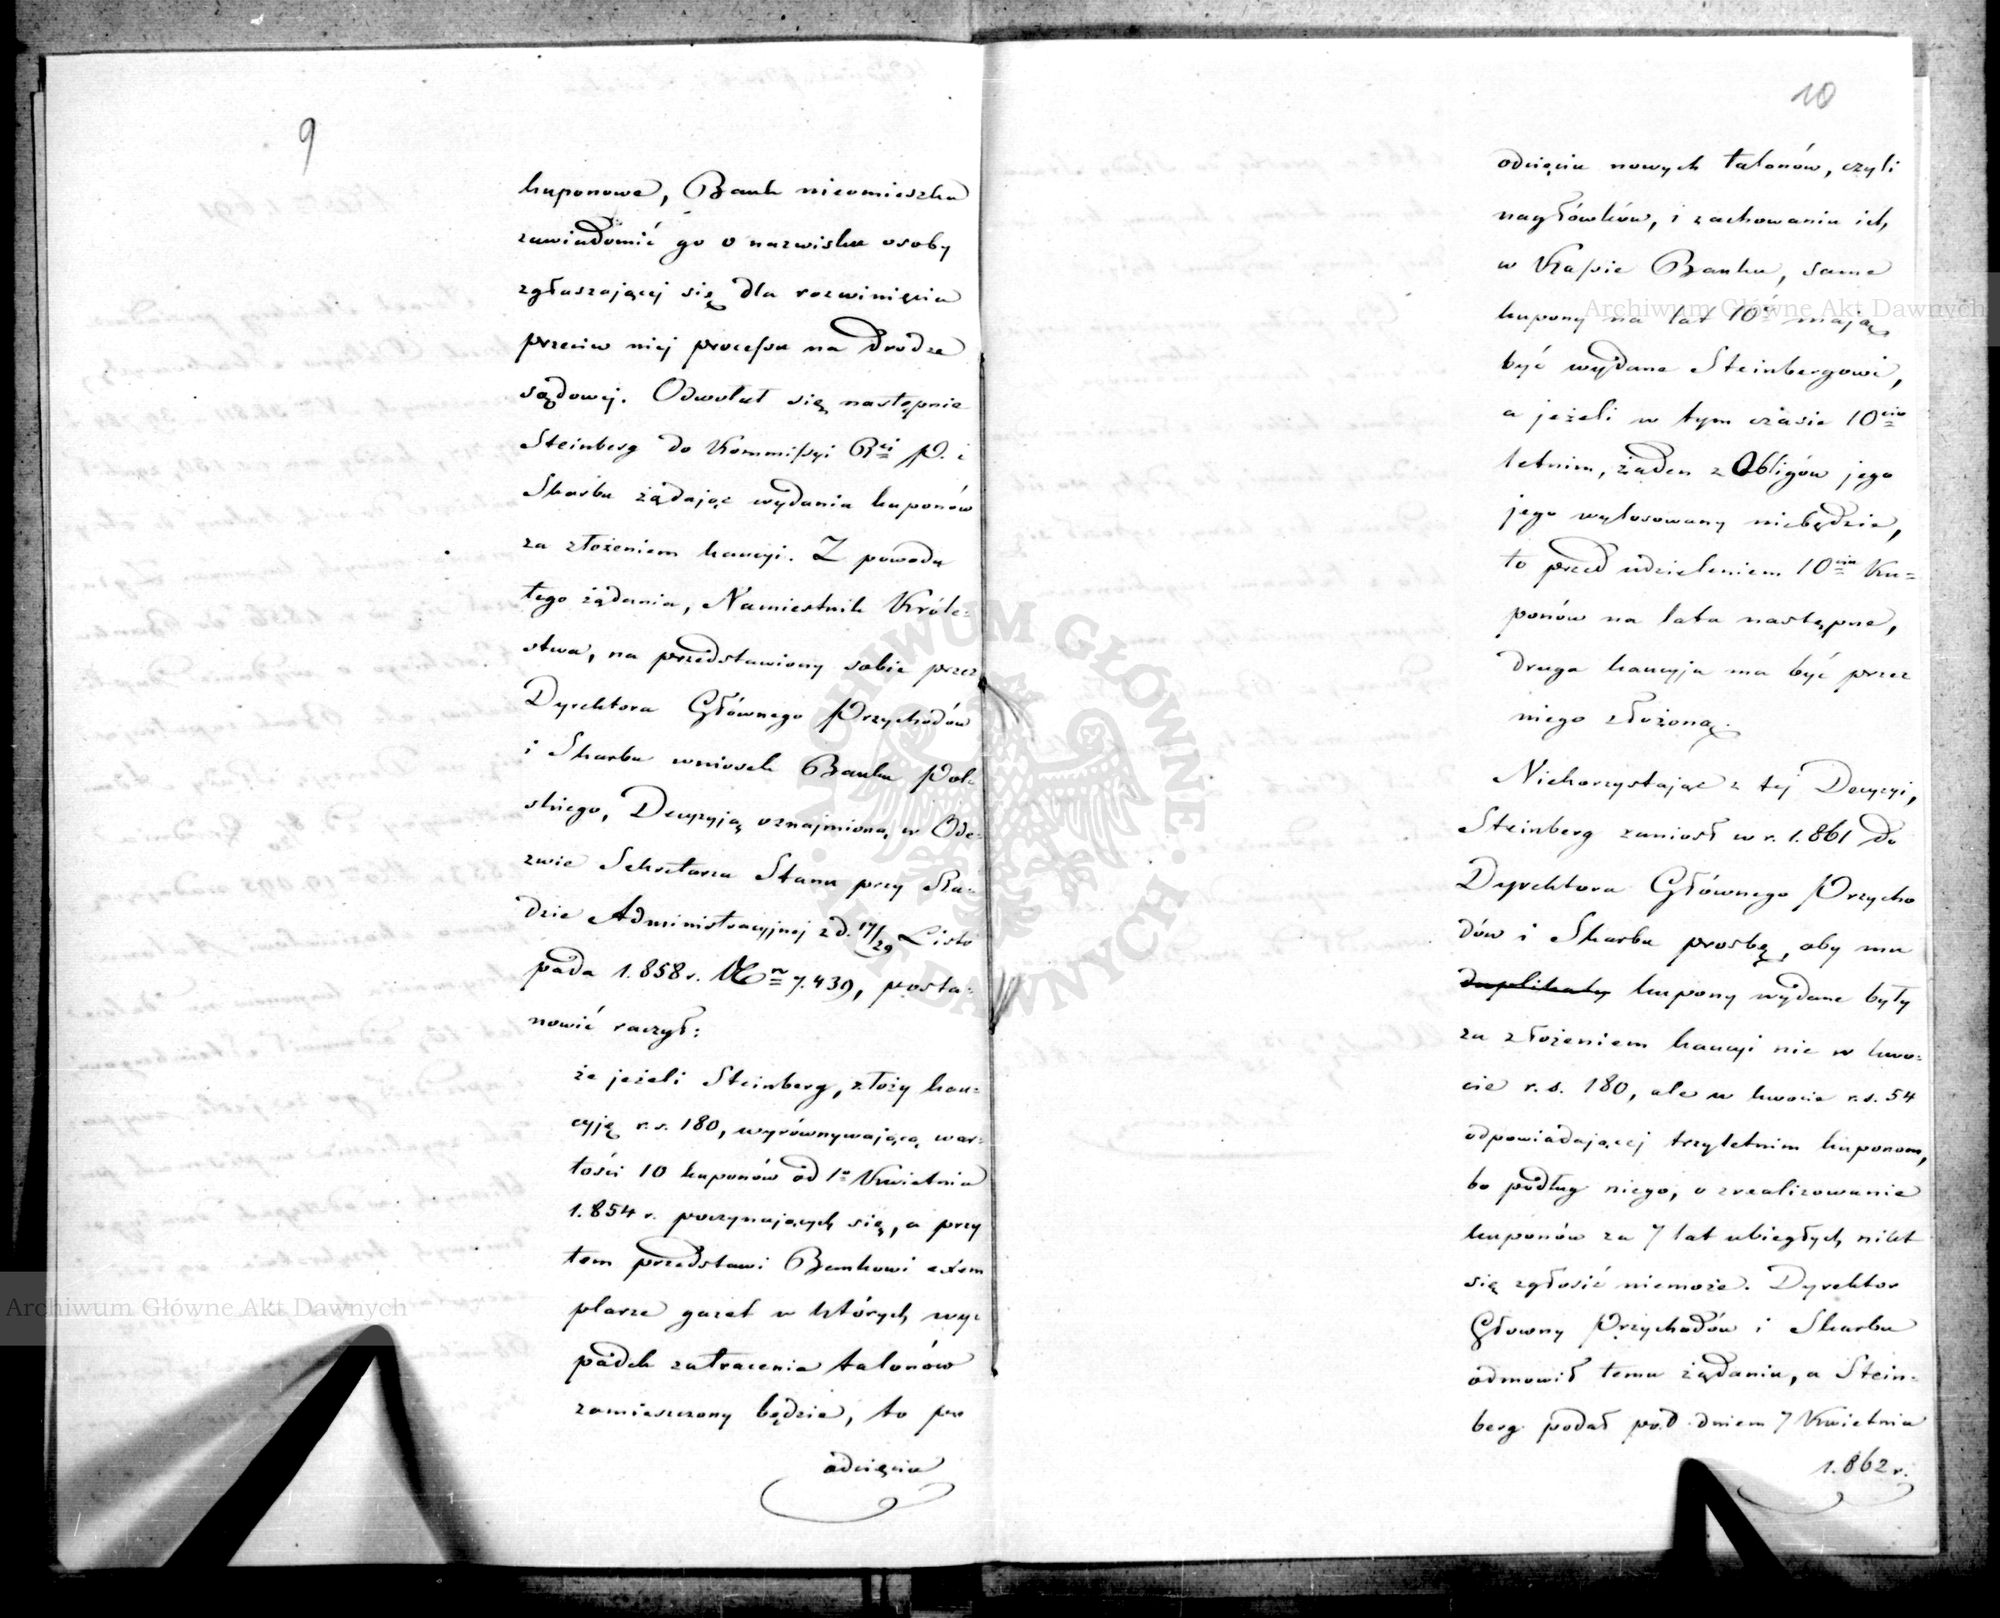 9
kuponowe, Bank nieomieszka
zawiadomić go o nazwisku osoby
zgłaszającej się dla rozwinięcia
przeciw niej processu na drodze
sądowej. Odwołał się następnie
Steinberg do Kommissyi Rei P. i
Skarbu żądając wydania kuponów
za złożeniem kaucyi. Z powodu
tego żądania, Namiestnik Króle=
stwa, na przedstawiony sobie przez
Dyrektora Głównego Przychodów
i Skarbu wniosek Banku Pol=
skiego, Decyzyją oznajmioną w Ode=
zwie Sekretarza Stanu przy Ra=
dzie Administracyjnej z d. 17/29 Listo
pada 1.858 r. Nr 7.439, posta=
nowić raczył:
że jeżeli Steinberg, złoży kau=
cyję r.s. 180, wyrównywającą war=
tości 10 kuponów od 1o Kwietnia
1.854 r. poczynających się, a przy
tem przedstawi Bankowi exem
plarze gazet w których wy=
padek zatracenia talonów
zamieszczony będzie, to po
odcięciu
10
odcięciu nowych talonów, czyli
nagłówków, i zachowaniu ich
w Kassie Banku, same
kupony na lat 10ć mają
być wydane Steinbergowi,
a jeżeli w tym czasie 10cio
letnim, żaden z Obligów jego
jego wylosowany niebędzie,
to przed udzieleniem 10ciu Ku=
ponów na lata następne,
druga kaucyja ma być przez
niego złożoną.
Niekorzystając z tej Decyzyi,
Steinberg zaniosł w r. 1.861 do
Dyrektora Głównego Przycho
dów i Skarbu prosbę, aby mu
duplikaty kupony wydane były
za złożeniem kaucyi nie w kwo=
cie r.s. 180, ale w kwocie r.s. 54
odpowiadającej trzyletnim kuponom,
bo podług niego, o zrealizowanie
kuponów za 7 lat ubiegłych nikt
się zgłosić niemoże. Dyrektor
Głowny Przychodów i Skarbu
odmowił temu żądaniu, a Stein=
berg podał pod dniem 7 Kwietnia
1.862 r.
Archiwum Główne Akt Dawnych
Archiwum Główne Akt Dawnych
ARCHIWUM GŁÓWNE · AKT DAWNYCH ·